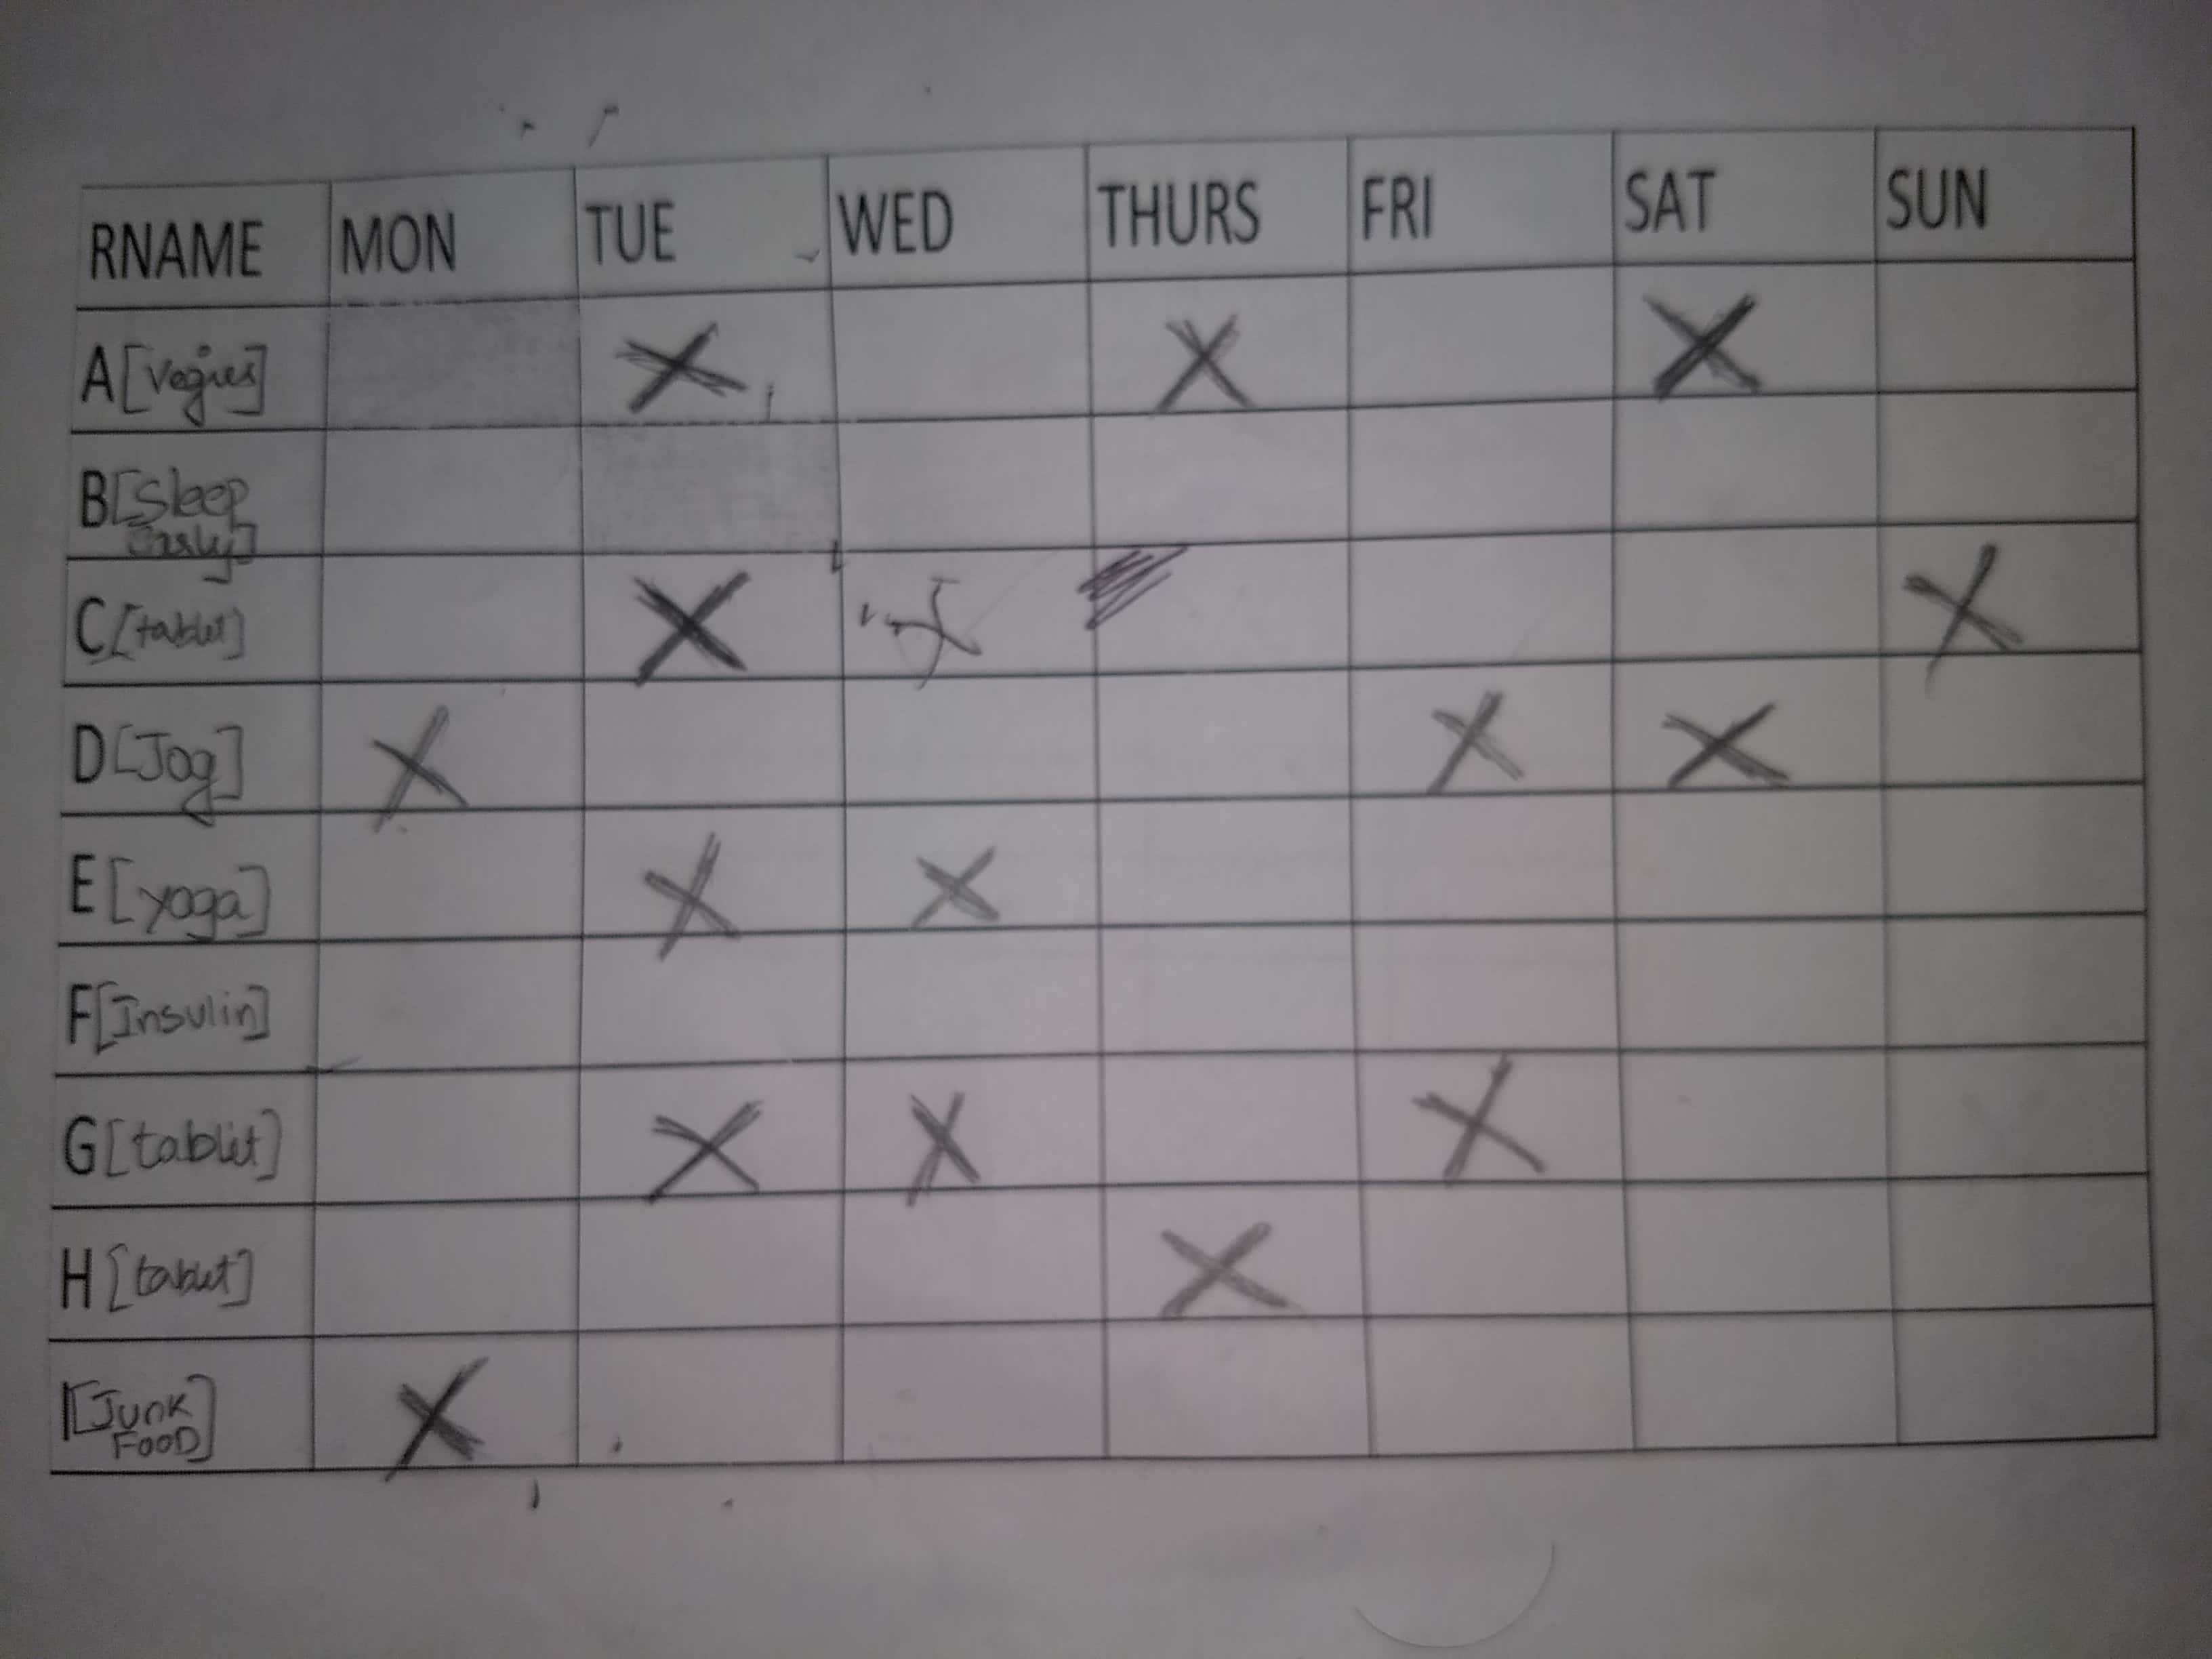 RNAME MON TUE WED THURS FRI SAT SUN
A[vegies] X X X
B[Sleep
Early]
C[tablet] X X X
D[Jog] X X X
E[yoga] X X
F[Insulin]
G[tablet] X X X
H[tablet] X
I[Junk X
FOOD]